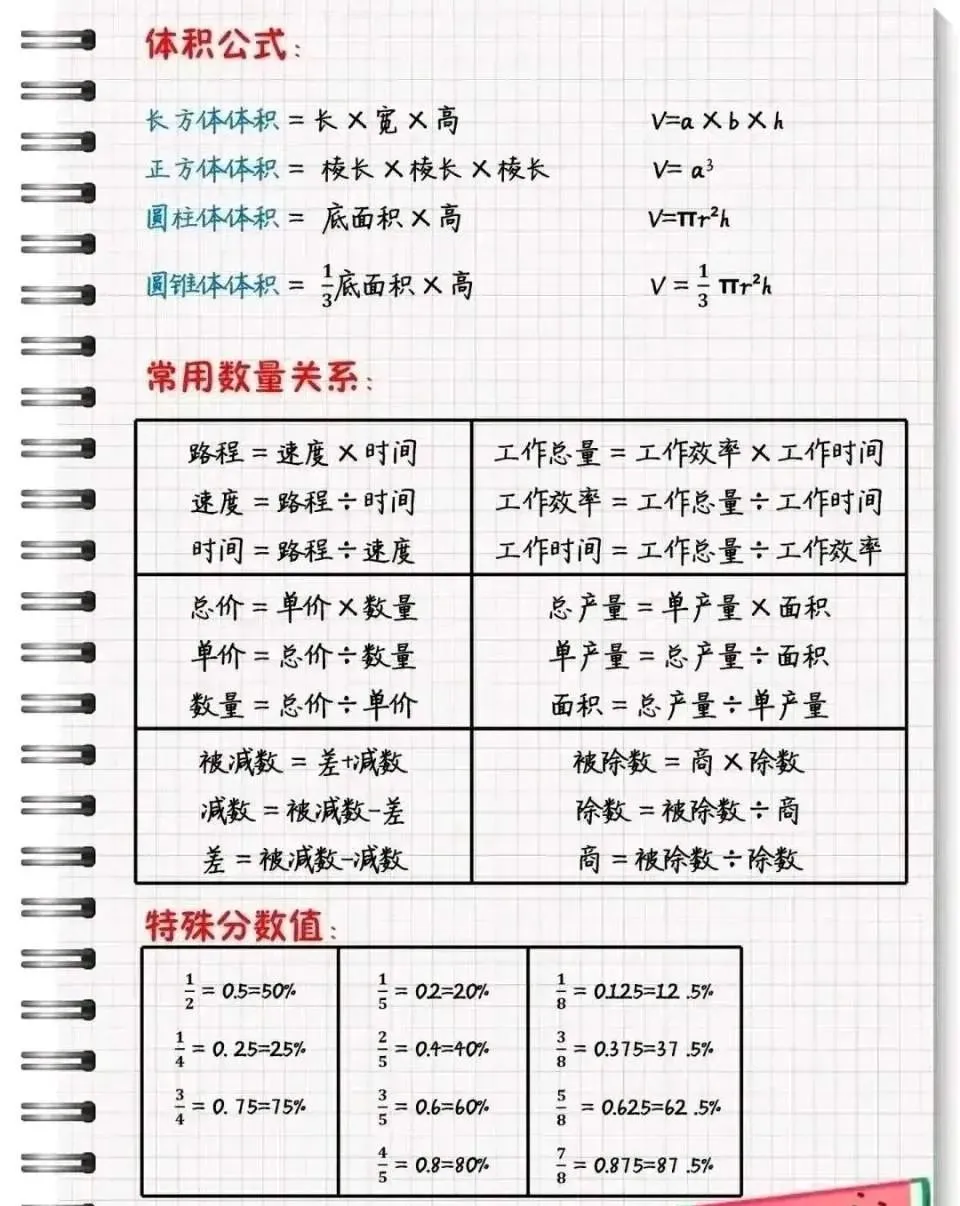 体积公式:
长方体体积 = 长 × 宽 × 高 V=a × b × h
正方体体积 = 棱长 × 棱长 × 棱长 V= a³
圆柱体体积 = 底面积 × 高 V=πr²h
圆锥体体积 = 1/3底面积 × 高 V = 1/3 πr²h
常用数量关系:
路程 = 速度 × 时间
速度 = 路程 ÷ 时间
时间 = 路程 ÷ 速度
工作总量 = 工作效率 × 工作时间
工作效率 = 工作总量 ÷ 工作时间
工作时间 = 工作总量 ÷ 工作效率
总价 = 单价 × 数量
单价 = 总价 ÷ 数量
数量 = 总价 ÷ 单价
总产量 = 单产量 × 面积
单产量 = 总产量 ÷ 面积
面积 = 总产量 ÷ 单产量
被减数 = 差+减数
减数 = 被减数-差
差 = 被减数-减数
被除数 = 商 × 除数
除数 = 被除数 ÷ 商
商 = 被除数 ÷ 除数
特殊分数值:
1/2 = 0.5=50%
1/4 = 0.25=25%
3/4 = 0.75=75%
1/5 = 0.2=20%
2/5 = 0.4=40%
3/5 = 0.6=60%
4/5 = 0.8=80%
1/8 = 0.125=12.5%
3/8 = 0.375=37.5%
5/8 = 0.625=62.5%
7/8 = 0.875=87.5%